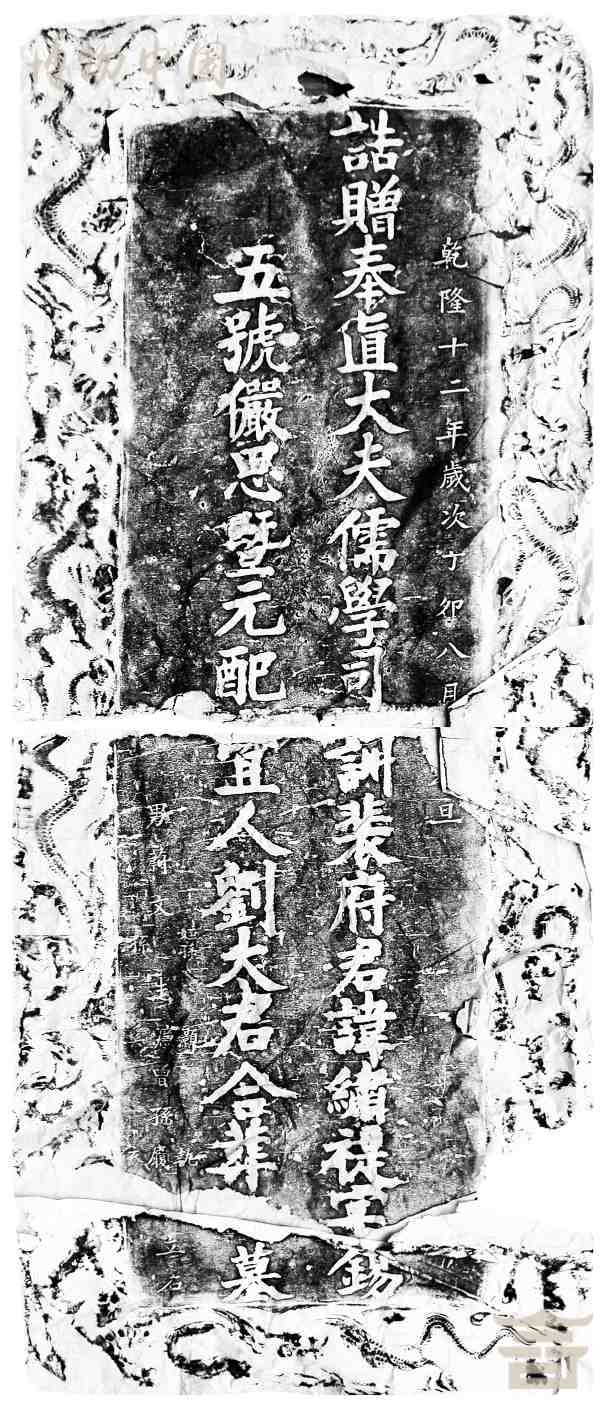 乾隆十二年歲次丁卯八月旦
誥贈奉直大夫儒學司訓裴府君諱緒祿字錫
五號儼思暨元配宜人劉大君合葬墓
男 文
曾孫
立石